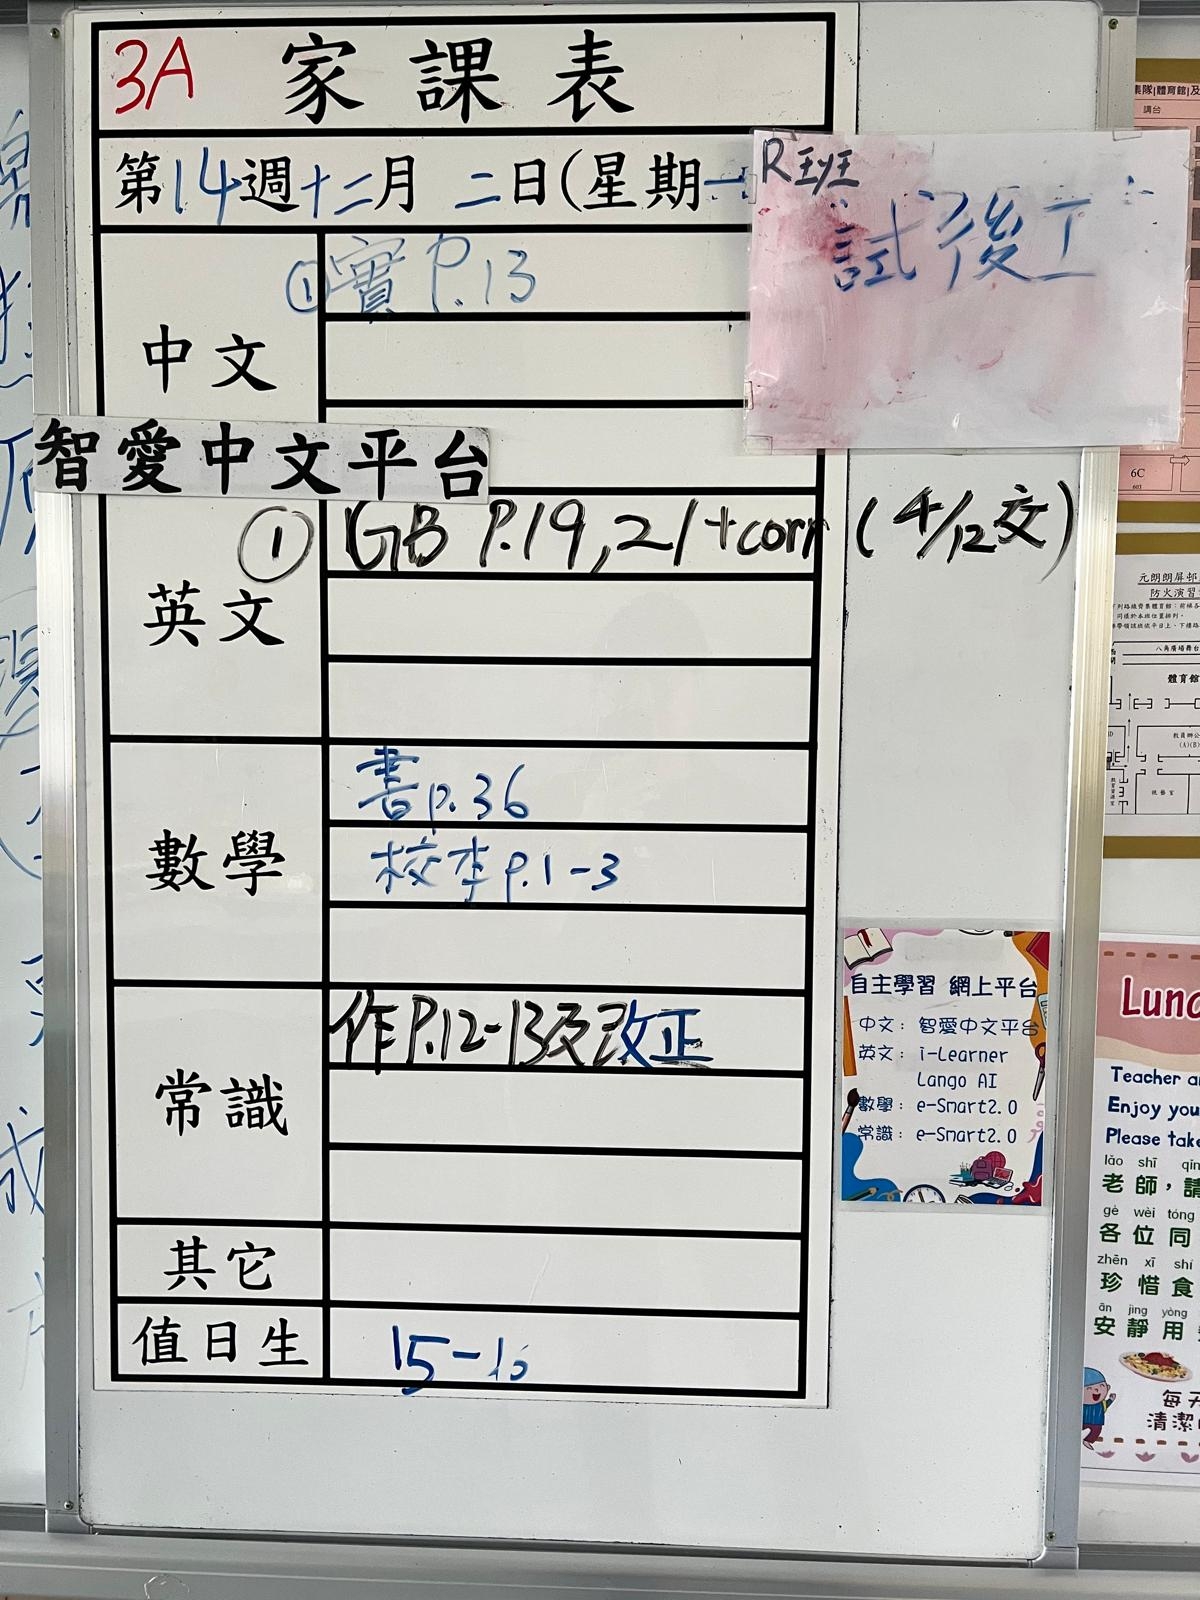 3A 家課表
第14週十二月 二日(星期一
R班:
試後工
中文
①實 P.13
智愛中文平台
英文
① GB P.19,21+corr (4/12交)
數學
書p.36
校本p.1-3
常識
作P.12-13及改正
其它
值日生
15-16
自主學習 網上平台
中文：智愛中文平台
英文：i-Learner
Lango AI
數學：e-Smart2.0
常識：e-Smart2.0
集隊(體育館)及
講台
6C
603
元朗朗屏邨
防火演習
八角廣場舞台
體育館
視藝室
Teacher
Enjoy you
Please take
lǎo shī
老師，請
gè wèi tóng
各位同
zhēn xī shí
珍惜食
ān jìng yòng
安靜用
每天
清潔